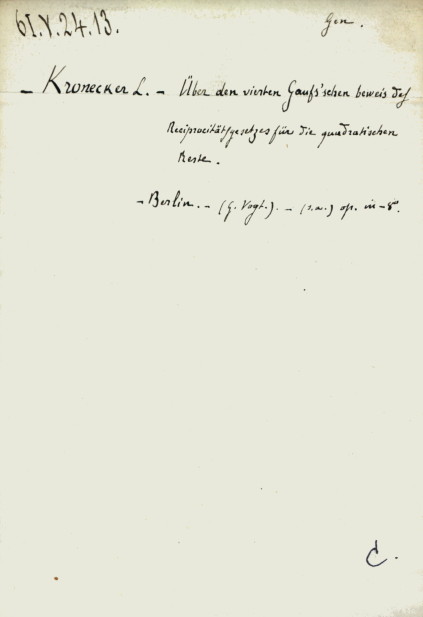 61.V.24.13.
Gen.
- Kronecker L. - Über den vierten Gaufs'schen beweis des
Reciprocitätsgesetzes für die quadratischen
Reste.
- Berlin. - (G. Vogt.). - (s.a.) op. in-8°.
C.